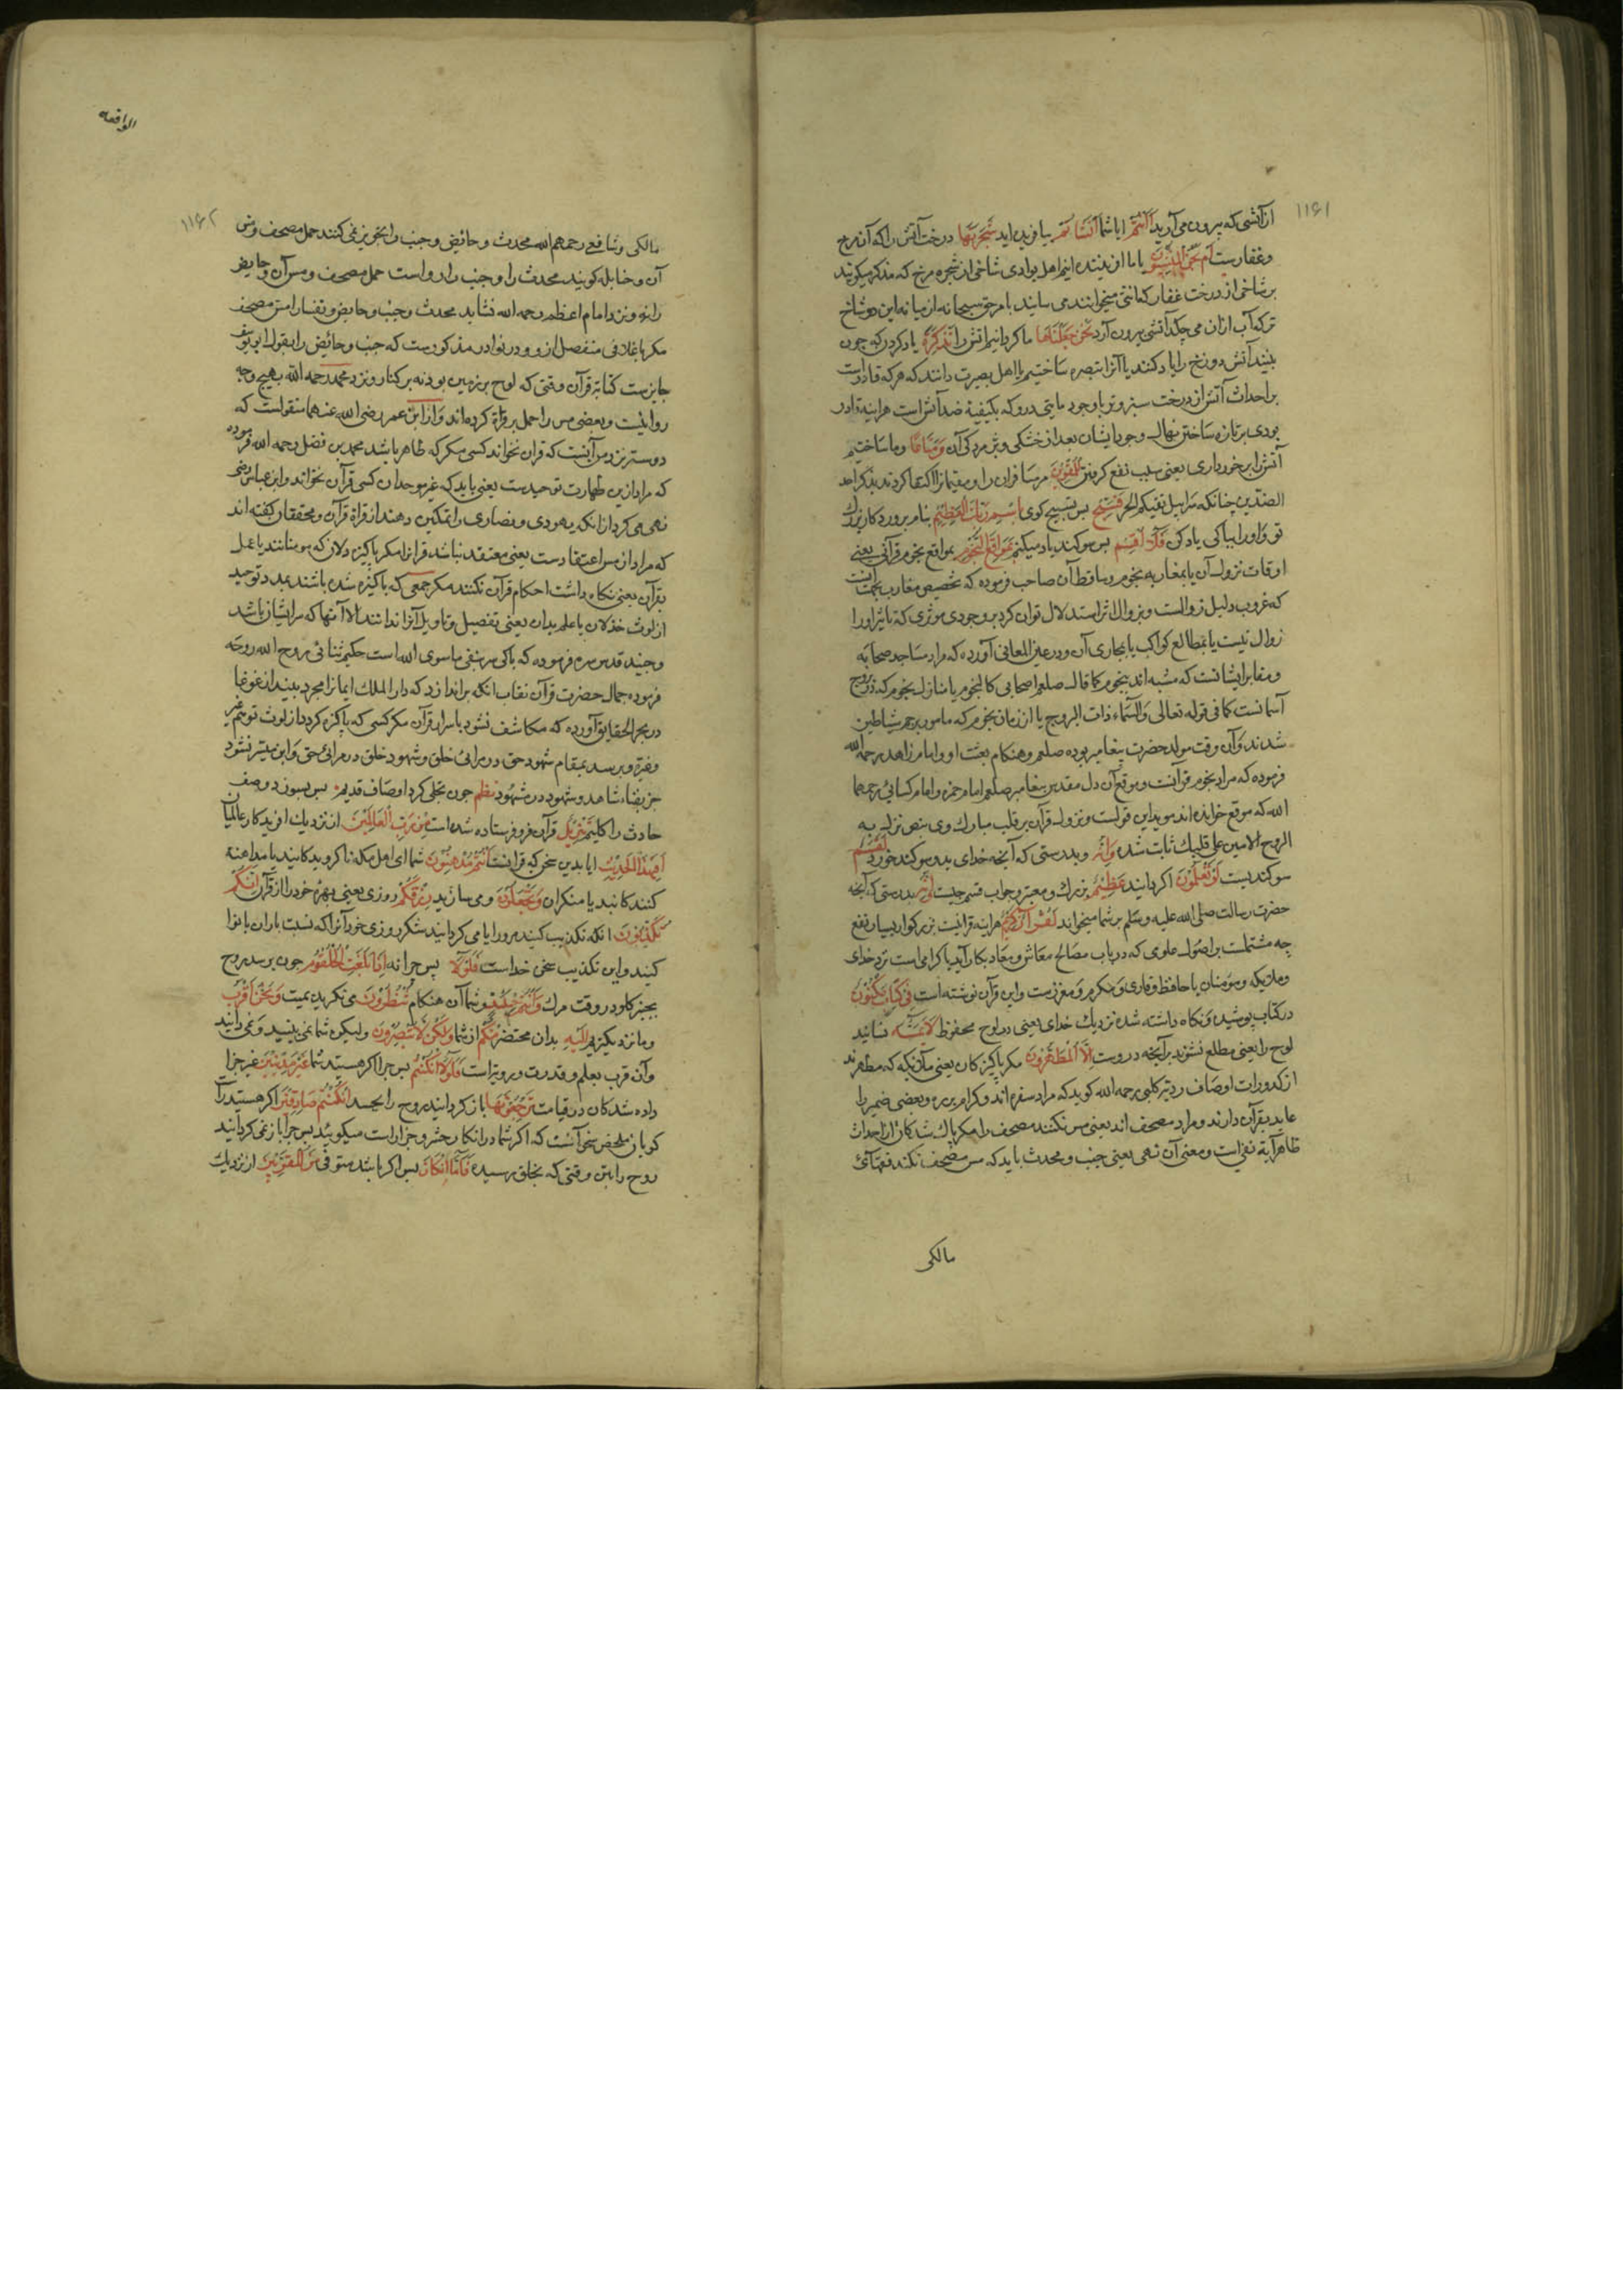 ۱۱۶۱
از آتشی که بیرون می آرید ءَاَنْتُمْ ایا شما اَنْشَاْتُمْ بیافریده اید شَجَرَتَهَا درخت آتش را که آن مرخ
و عفارست اَمْ نَحْنُ الْمُنْشِئُونَ یا ما افریننده ایم اهل بوادی شاخی از شجره مرخ که مذکر میگویند
بر شاخی از درخت عفار که انثی میخوانند می سایند بامر حق سبحانه از میانه این دو شاخ
تر که آب ازان می چکد آتشی بیرون آرد نَحْنُ جَعَلْنَاهَا ما کردانیم اتش را تَذْكِرَةً یاد کردن که چون
بینند آتش دوزخ را یاد کنند یا آنرا تبصره ساختیم یا اهل بصیرت دانند که هرکه قادرست
بر احداث آتش از درخت سبز و تر با وجود مایتی درو که بکیفیة ضد آتش است هراینه قادر
بودی بر تازه ساختن نهال وجود ایشان بعد از خشکی و پژمردکی آن وَمَتَاعًا و ما ساختیم
آتش را برخورداری یعنی سبب نفع کرفتن لِلْمُقْوِينَ مر مسافران را و مقیمانرا اکتفا کردند بذکر احد
الضدین چنانکه سَرَابِيلَ تَقِيكُمُ الْحَرَّ فَسَبِّحْ بس تسبیح کوی بِاسْمِ رَبِّكَ الْعَظِيمِ بنام پروردکار بزرك
تو و او را بپاکی یاد کن فَلَا اُقْسِمُ پس سوکند یاد میکنم بِمَوَاقِعِ النُّجُومِ بمواقع نجوم قرآنی یعنی
اوقات نزول آن یا بمغاربه نجوم و ساقط آن صاحب فرموده که تخصیص مغارب بجهت انست
که غروب دلیل زوالست و بزوال اثر استدلال توان کرد بر وجودی موثری که تاثیر او را
زوال نیست یا بمطالع کواکب یا بمجاری آن و در عین المعانی آورده که مراد مساجد صحابه
و مقابر ایشانست که مشبه اند بنجوم کما قال صلعم اصحابی کالنجوم یا منازل نجوم که ذی بروج
آسمانست کما فی قوله تعالی وَالسَّمَاءِ ذَاتِ الْبُرُوجِ یا از زمان نجوم که مامور برجم شیاطین
شدند و آن وقت مولد حضرت پیغامبر بوده صلعم و هنکام بعثت او و امام زاهد رحمه الله
فرموده که مراد نجوم قرآنت و موقع آن دل مقدس پیغامبر صلعم امام حمزه و امام کسائی رحمهما
الله که موقع خوانده اند موید این قولست و نزول قرآن بر قلب مبارك وی بنص نَزَلَ بِهِ
الرُّوحُ الْاَمِينُ عَلَى قَلْبِكَ ثابت شده وَاِنَّهُ و بدرستی که آنچه خدای بدو سوکند خورد لَقَسَمٌ
سوکندیست لَوْ تَعْلَمُونَ اکر دانید عَظِيمٌ بزرك و معتبر و جواب قسم چیست اِنَّهُ بدرستی که آنچه
حضرت رسالت صلی الله علیه و سلم بر شما میخواند لَقُرْآنٌ كَرِيمٌ هراینه قرانیست بزرکوار بسیار نفع
چه مشتملست بر اصول علوی که در باب مصالح معاش و معاد بکار آید یا کرامی است نزد خدای
و ملایکه و مومنان یا حافظ و قاری او مکرم و معززست و این قرآن نوشته است فِي كِتَابٍ مَكْنُونٍ
در کتاب پوشیده و نکاه داشته شده نزدیك خدای یعنی در لوح محفوظ لَا يَمَسُّهُ نسانید
لوح را یعنی مطلع نشوند بر آنچه دروست اِلَّا الْمُطَهَّرُونَ مکر پاکیزکان یعنی ملائکه که مطهرند
از کدورات اوصاف ردیه کلبی رحمه الله کوید که مراد سفره اند و کرام برره و بعضی ضمیر را
عاید بقرآن دارند و مراد مصحف اند یعنی مس نکنند مصحف را مکر پاك شدکان از احداث
ظاهر آیه نفی است و معنی آن نهی یعنی جنب و محدث باید که مس مصحف نکند فقهائ
مالکی
الواقعه
۱۱۶۲
مالکی و شافعی رحمهم الله محدث و حائض و جنب را تجویز نمی کنند حمل مصحف و مس
آن و حنابله کویند محدث را و جنب را روا است حمل مصحف و مس آن و حایض
را نه و نزد امام اعظم رحمه الله نشاید محدث و جنب و حایض و نفسا را مس مصحف
مکر با غلافی منفصل ازو و در نوادر مذکورست که جنب و حائض را بقول ابی یوسف
جایزست کتابة قرآن وقتی که لوح بر زمین بود نه بر کنار و نزد محمد رحمه الله بهیچ وجه
روا نیست و بعضی مس را حمل بر قراة کرده اند و از ابن عمر رضی الله عنهما منقولست که
دوستر نزد من آنست که قران نخواند کسی مکر که طاهر باشد محمد بن فضل رحمه الله فرموده
که مراد ازین طهارت توحیدست یعنی باید که غیر موحدان کسی قرآن نخواند و ابن عباس رضی
نهی می کرد از انکه یهودی و نصاری را تمکین دهند از قراة قرآن و محققان کفته اند
که مراد از مس اعتقادست یعنی معتقد نباشد قرانرا مکر پاکیزه دلان که مومنانند یا عمل
بقرآن یعنی نکاه داشت احکام قرآن نکنند مکر جمعی که پاکیزه شده باشند بمدد توحید
از لوث خذلان یا علم بدان یعنی تفصیل و تاویل آنرا ندانند الا آنها که سر ایشان پاك باشد
و جنید قدس سره فرموده که پاکی سر بنفی ما سوی الله است حکیم ثنائی روح الله روحه
فرموده جمال حضرت قرآن نقاب انکه براندازد که دار الملك ایمانرا مجرد بیند از غوغا
در بحر الحقایق آورده که مکاشف نشود باسرار قرآن مکر کسی که پاکیزه کردد از لوث توهم غیر
و غیریه و برسد بمقام شهود حق در مرائی خلق و شهود خلق در مرائی حق و این میسر نشود
جز بفناء شاهد و شهود در مشهود نظم چون تجلی کرد اوصاف قدیم پس بسوزد وصف
حادث را کلیم تَنْزِيلٌ قرآن فرو فرستاده شده است مِنْ رَبِّ الْعَالَمِينَ از نزدیك افریدکار عالمیان
اَفَبِهَذَا الْحَدِيثِ ایا بدین سخن که قرانست اَنْتُمْ مُدْهِنُونَ شما ای اهل مکه ناکرویدکانید یا مداهنة
کنندکانید یا منکران وَتَجْعَلُونَ و می سازید رِزْقَكُمْ روزی یعنی بهره خود را از قرآن اَنَّكُمْ
تُكَذِّبُونَ انکه تکذیب کنید مرورا یا می کردانید شکر روزی خود آنرا که نسبت باران بانوا
کنید و این تکذیب سخن خداست فَلَوْلَا پس چرا نه اِذَا بَلَغَتِ الْحُلْقُومَ چون برسد روح
بحنجر کاو در وقت مرك وَاَنْتُمْ حِينَئِذٍ و شما آن هنکام تَنْظُرُونَ می نکرید بمیت وَنَحْنُ اَقْرَبُ
و ما نزدیکتریم اِلَيْهِ بدان محتضر مِنْكُمْ از شما وَلَكِنْ لَا تُبْصِرُونَ و لیکن شما نمی بینید و نمی دانید
و آن قرب بعلم و قدرت و رویة است فَلَوْلَا اِنْ كُنْتُمْ پس چرا اکر هستید شما غَيْرَ مَدِينِينَ غیر جزا
داده شدکان در قیامت تَرْجِعُونَهَا باز کردانید روح را بجسد اِنْ كُنْتُمْ صَادِقِينَ اکر هستید راست
کویان ملخص سخن آنست که اکر شما در انکار حشر و جزا راست میکویید پس چرا باز نمی کردانید
روح را بتن وقتی که بحلق رسیده فَاَمَّا اِنْ كَانَ پس اکر باشد متوفی مِنَ الْمُقَرَّبِينَ از نزدیك